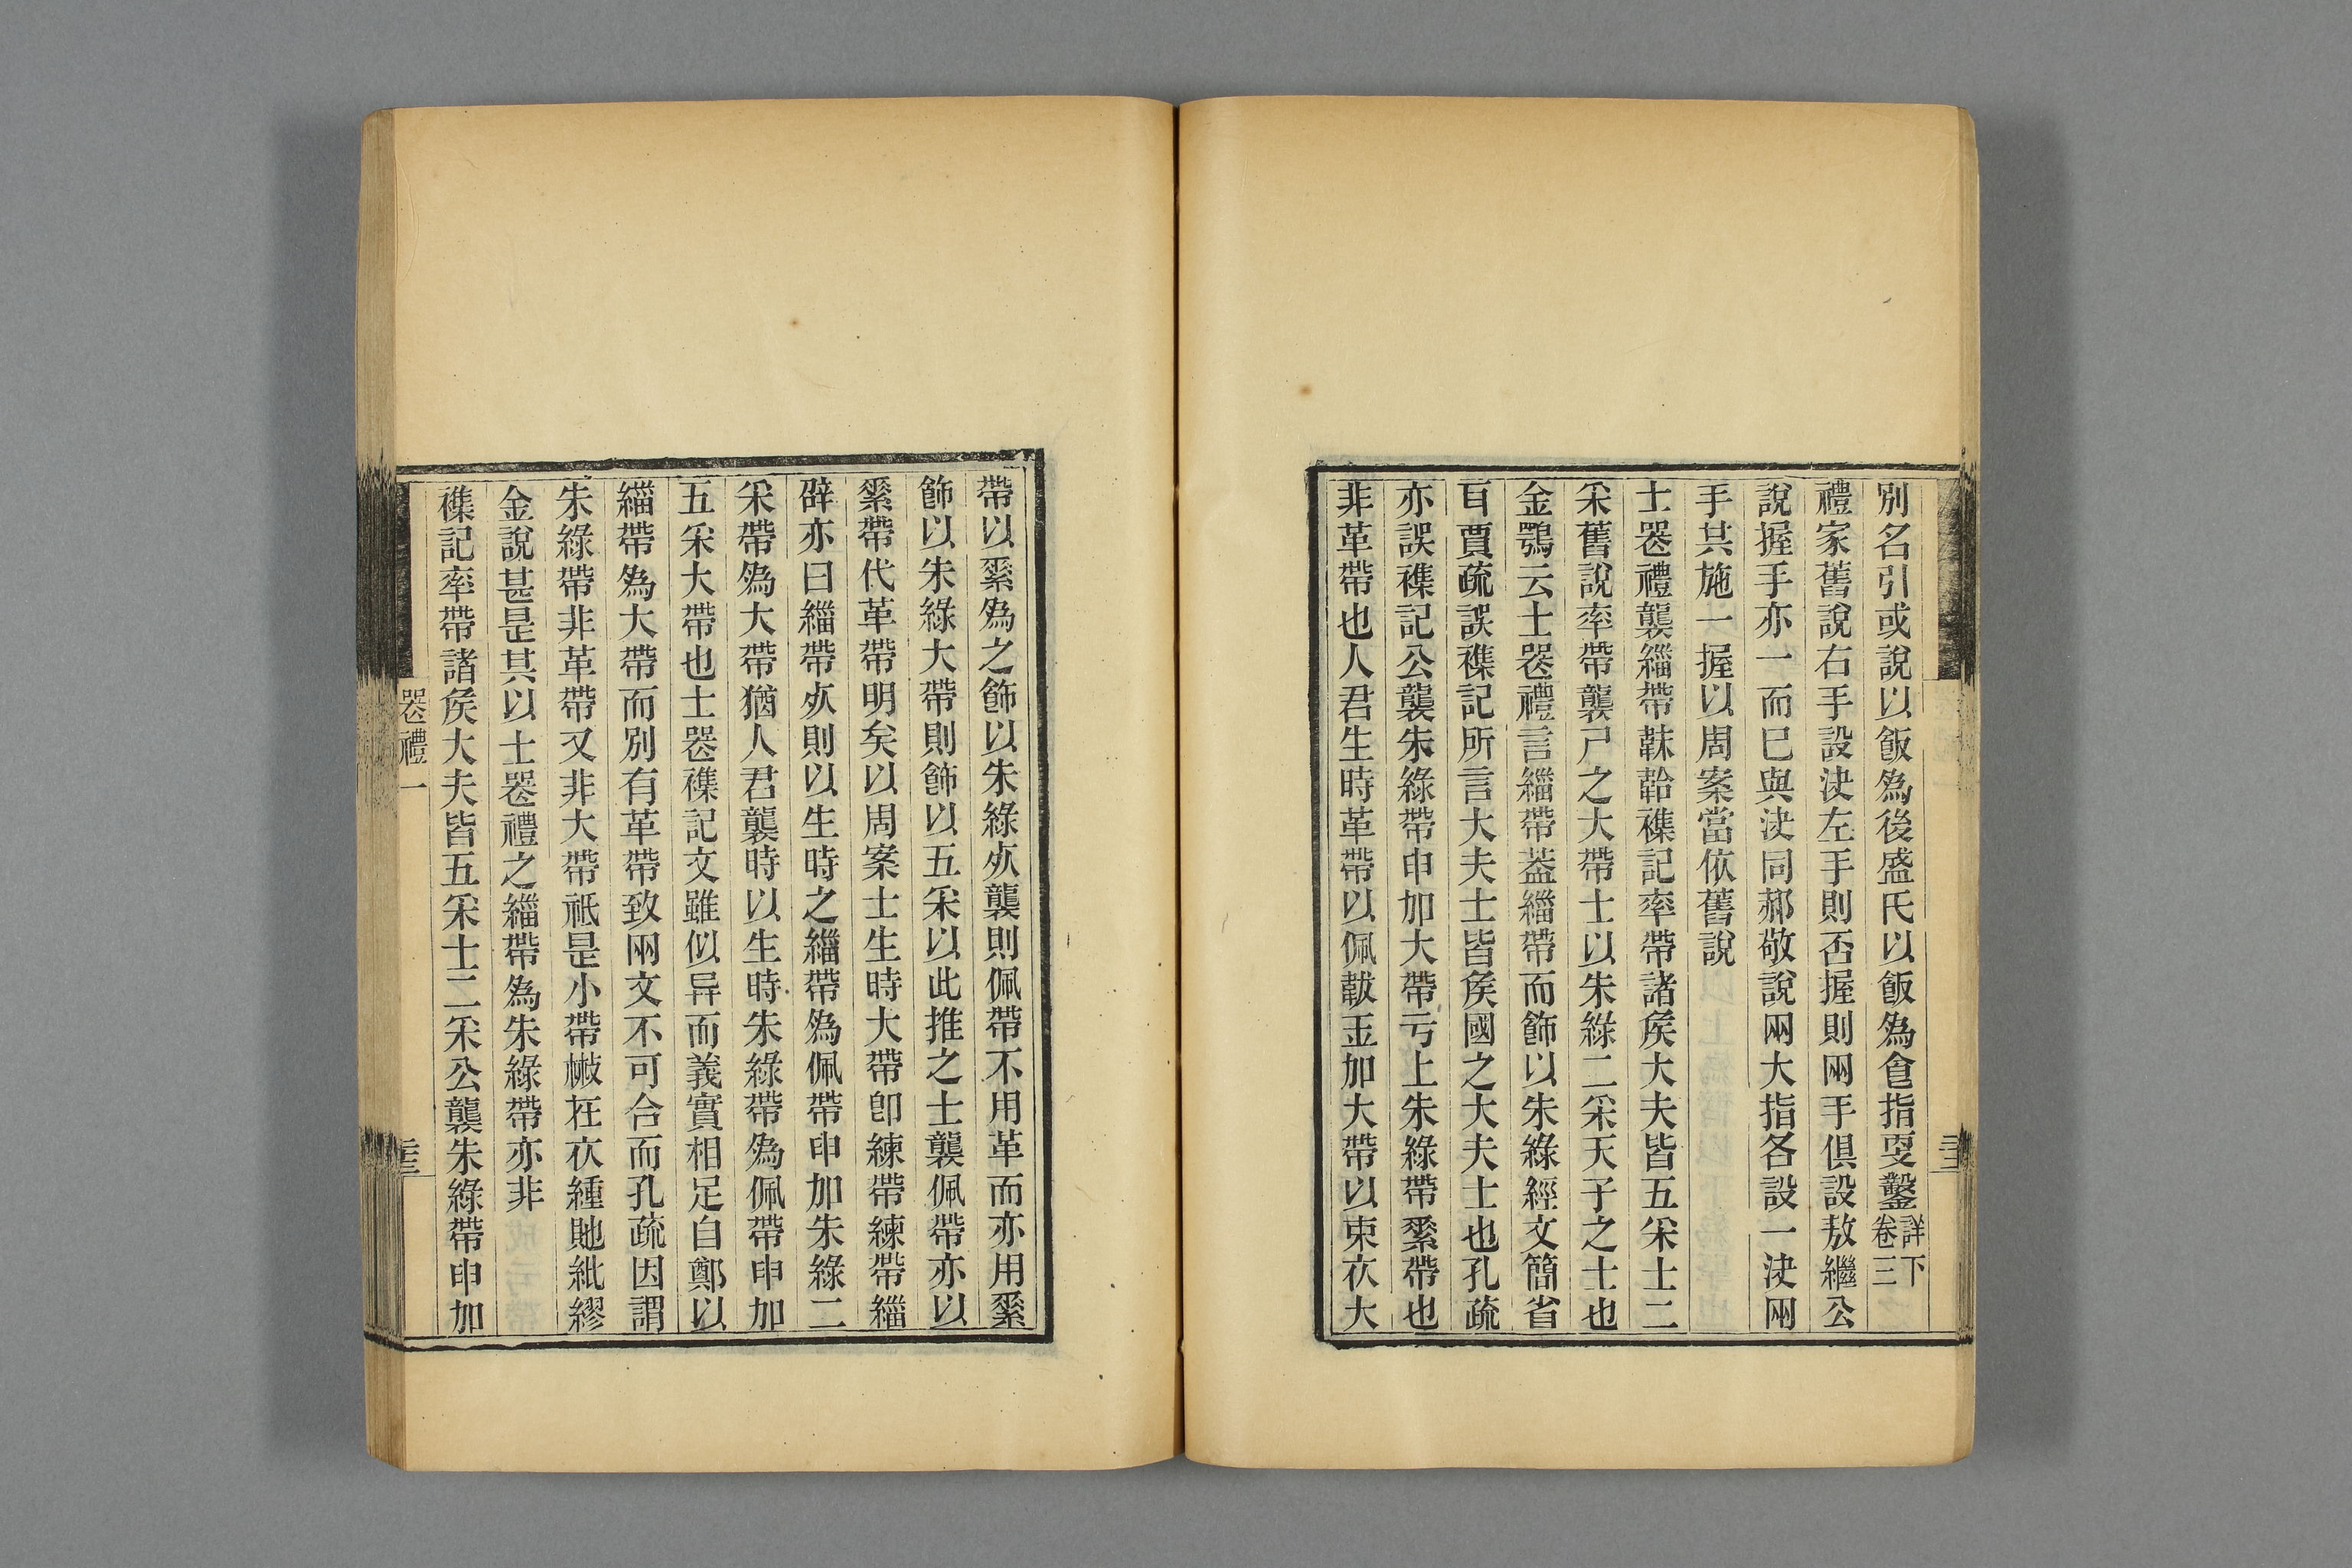 別名引或說以飯為後盛氏以飯為㑹指㪅鑿詳下卷三
禮家舊說右手設決左手則否握則兩手俱設敖繼公
說握手亦一而巳與決同郝敬說兩大指各設一決兩
手其施一握以周案當依舊說
士喪禮襲緇帶韎韐襍記率帶諸矦大夫皆五采士二
采舊說率帶襲尸之大帶士以朱綠二采天子之士也
金鶚云士喪禮言緇帶葢緇帶而飾以朱綠經文簡省
耳賈疏誤襍記所言大夫士皆矦國之大夫士也孔疏
亦誤襍記公襲朱綠帶申加大帶亏上朱綠帶絫帶也
非革帶也人君生時革帶以佩韍玉加大帶以束衣大
帶以絫為之飾以朱綠㱙襲則佩帶不用革而亦用絫
飾以朱綠大帶則飾以五采以此推之士襲佩帶亦以
絫帶代革帶明矣以周案士生時大帶卽練帶練帶緇
辟亦曰緇帶㱙則以生時之緇帶為佩帶申加朱綠二
采帶為大帶猶人君襲時以生時朱綠帶為佩帶申加
五采大帶也士喪襍記文雖似异而義實相足自鄭以
緇帶為大帶而別有革帶致兩文不可合而孔疏因謂
朱綠帶非革帶又非大帶祗是小帶㪔在衣緟貤紕繆
金說甚是其以士喪禮之緇帶為朱綠帶亦非
襍記率帶諸矦大夫皆五采士二采公襲朱綠帶申加
喪禮一